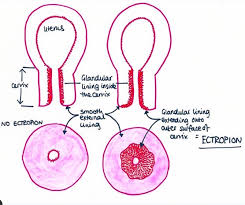 Uterus
Cervix
Glandular
lining inside
the Cervix
Smooth
external
lining
NO ECTROPION
Glandular lining
extending onto
outer surface of
cervix
= ECTROPION